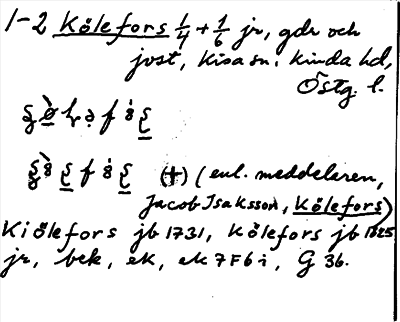 1-2 Kölefors 1/4 + 1/6 jr, gdr och
jost, Kisa sn. kinda hd,
Östg. l.
(+) (enl. meddelaren,
Jacob Isaksson, Kölefors)
Kiölefors jb 1731, Kölefors jb 1825
jr, bek, ek, ek 7F6i, G 36.